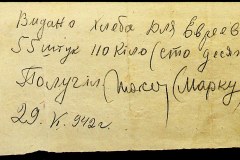 Видано хлеба для Евреев
55 штук 110 Кіло (сто десят
Получил (Марку
29. V. 942 г.